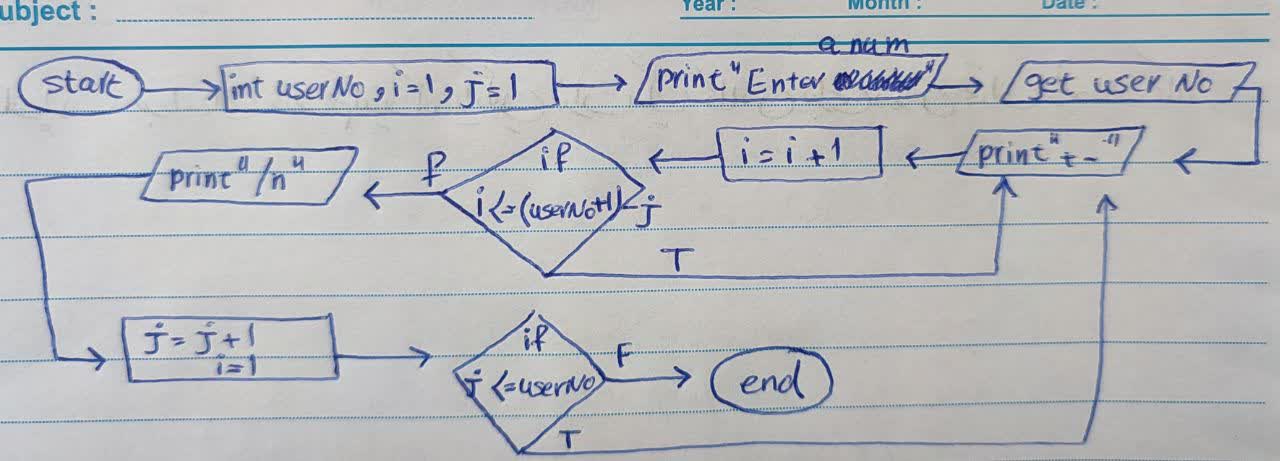 ubject :
Year :
Month :
Date :
start
int userNo, i=1, j=1
a num
print "Enter "
get user No
print "+-"
i = i + 1
if
i <= (userNo+1) - j
f
T
print "/n"
j = j + 1
i = 1
if
j <= userNo
F
T
end